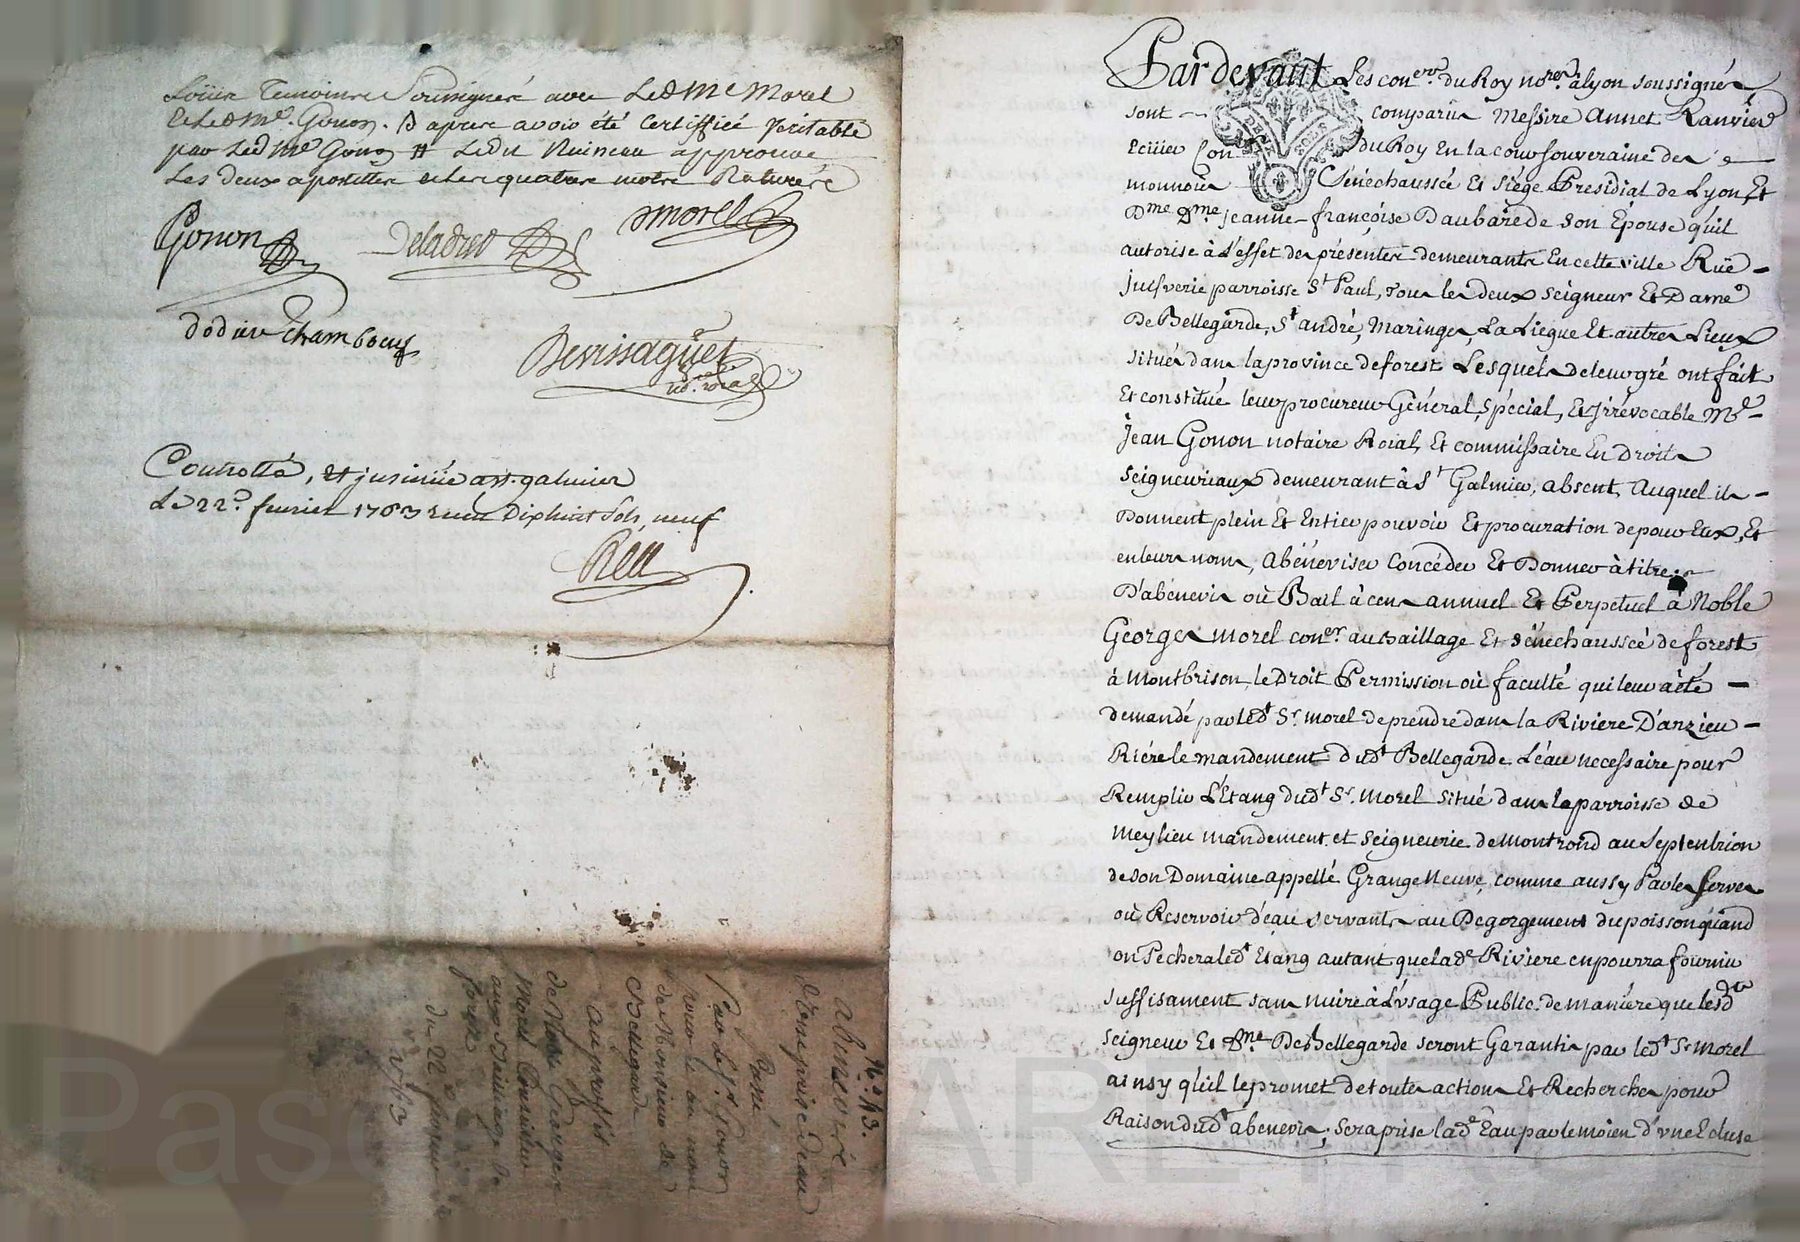 Témoins Soussignés avec Ledt Me Morel
et Ledt Me Gonon. Et apres avoir été Certiffiée Véritable
par Ledt Me Gonon Ledit approuve
Les deux apostilles et les quatre mots Raturés
Gonon
Deladret
Morel
Dodieu Chamboeuf
Devissaguet
nore royal
Controllé, et insinüé a St. galmier
Le 22e fevrier 1763 Dixhuit Sols, neuf
No. 43.
abenevis
d'une prise d'eau
Passé
Par le Sr. Gonon
procr. au nom
de Monsieur de
Bellegarde
au proffit
de Noble George
Morel Conseiller
aux Bailliage de
forest
du 22 fevrier
1763
Par devant Les coners. du Roy nores. à Lyon soussignés
sont comparus Messire Annet Ranvier
Ecuier Con du Roy En la cour Souveraine des
monnoies Sénéchaussée Et Siége Présidial de Lyon, Et
Dme. Dme. Jeanne françoise Daubarede son Epouse qu'il
autorise à L'effet des présentes demeurants En cette ville Ruë
Juifverie parroisse St. Paul, Tous les deux seigneur Et Dame
De Bellegarde, St. andré, Maringes, La Liegue Et autres Lieux
situés dans la province de forest Lesquels de leur gré ont fait
Et constitué leur procureur Général, spécial, Et Irrévocable Me.
Jean Gonon notaire Roial, Et commissaire En Droits
seigneuriaux demeurant à St Galmier, absent, Auquel ils
Donnent plein Et Entier pouvoir Et procuration de pour Eux, Et
en leurs noms, Abéneviser Concéder Et Donner à titre
D'abénevis où Bail à cens annuel Et Perpetuel à Noble
George Morel coner. au Baillage Et sénéchaussée de forest
à Montbrison, le Droit Permission où faculté qui leur à été
demandé par ledt Sr. Morel de prendre dans la Riviere D'anzieu
Riére le mandement dudt Bellegarde L'éau necessaire pour
Remplir L'Etang dudt Sr. Morel situé dans la parroisse de
Meylieu mandement et seigneurie de Montrond au Septentrion
de son Domaine appellé Grange Neuve, comme aussy Par les serves
où Reservoir d'eau servants au Degorgement du poisson quand
on Pechera ledt Etang autant que lade. Riviere en pourra fournir
suffisament sans nuire à L'usage Public. de maniére que lesdts
seigneur Et Dme. De Bellegarde seront Garantis par ledt Sr Morel
ainsy qu'il le promet de toutes actions Et Recherches pour
Raison dudt abenevis, sera prise lade Eau par le moien d'une Ecluse
Pasc AREYR